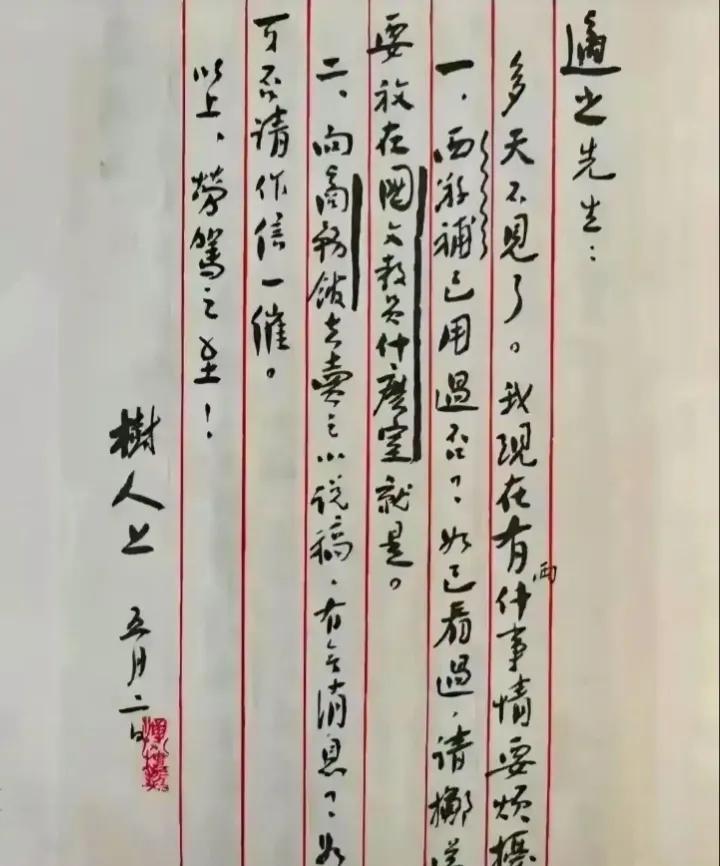 適之先生：
多天不見了。我現在有两件事情要煩擾
一，西游補已用過否？如已看過，請擲
要放在國文教員什麽室就是。
二、向商務館去賣之小说稿，有無消息？如
可否請作信一催。
以上，勞駕之至！
樹人上 五月二日